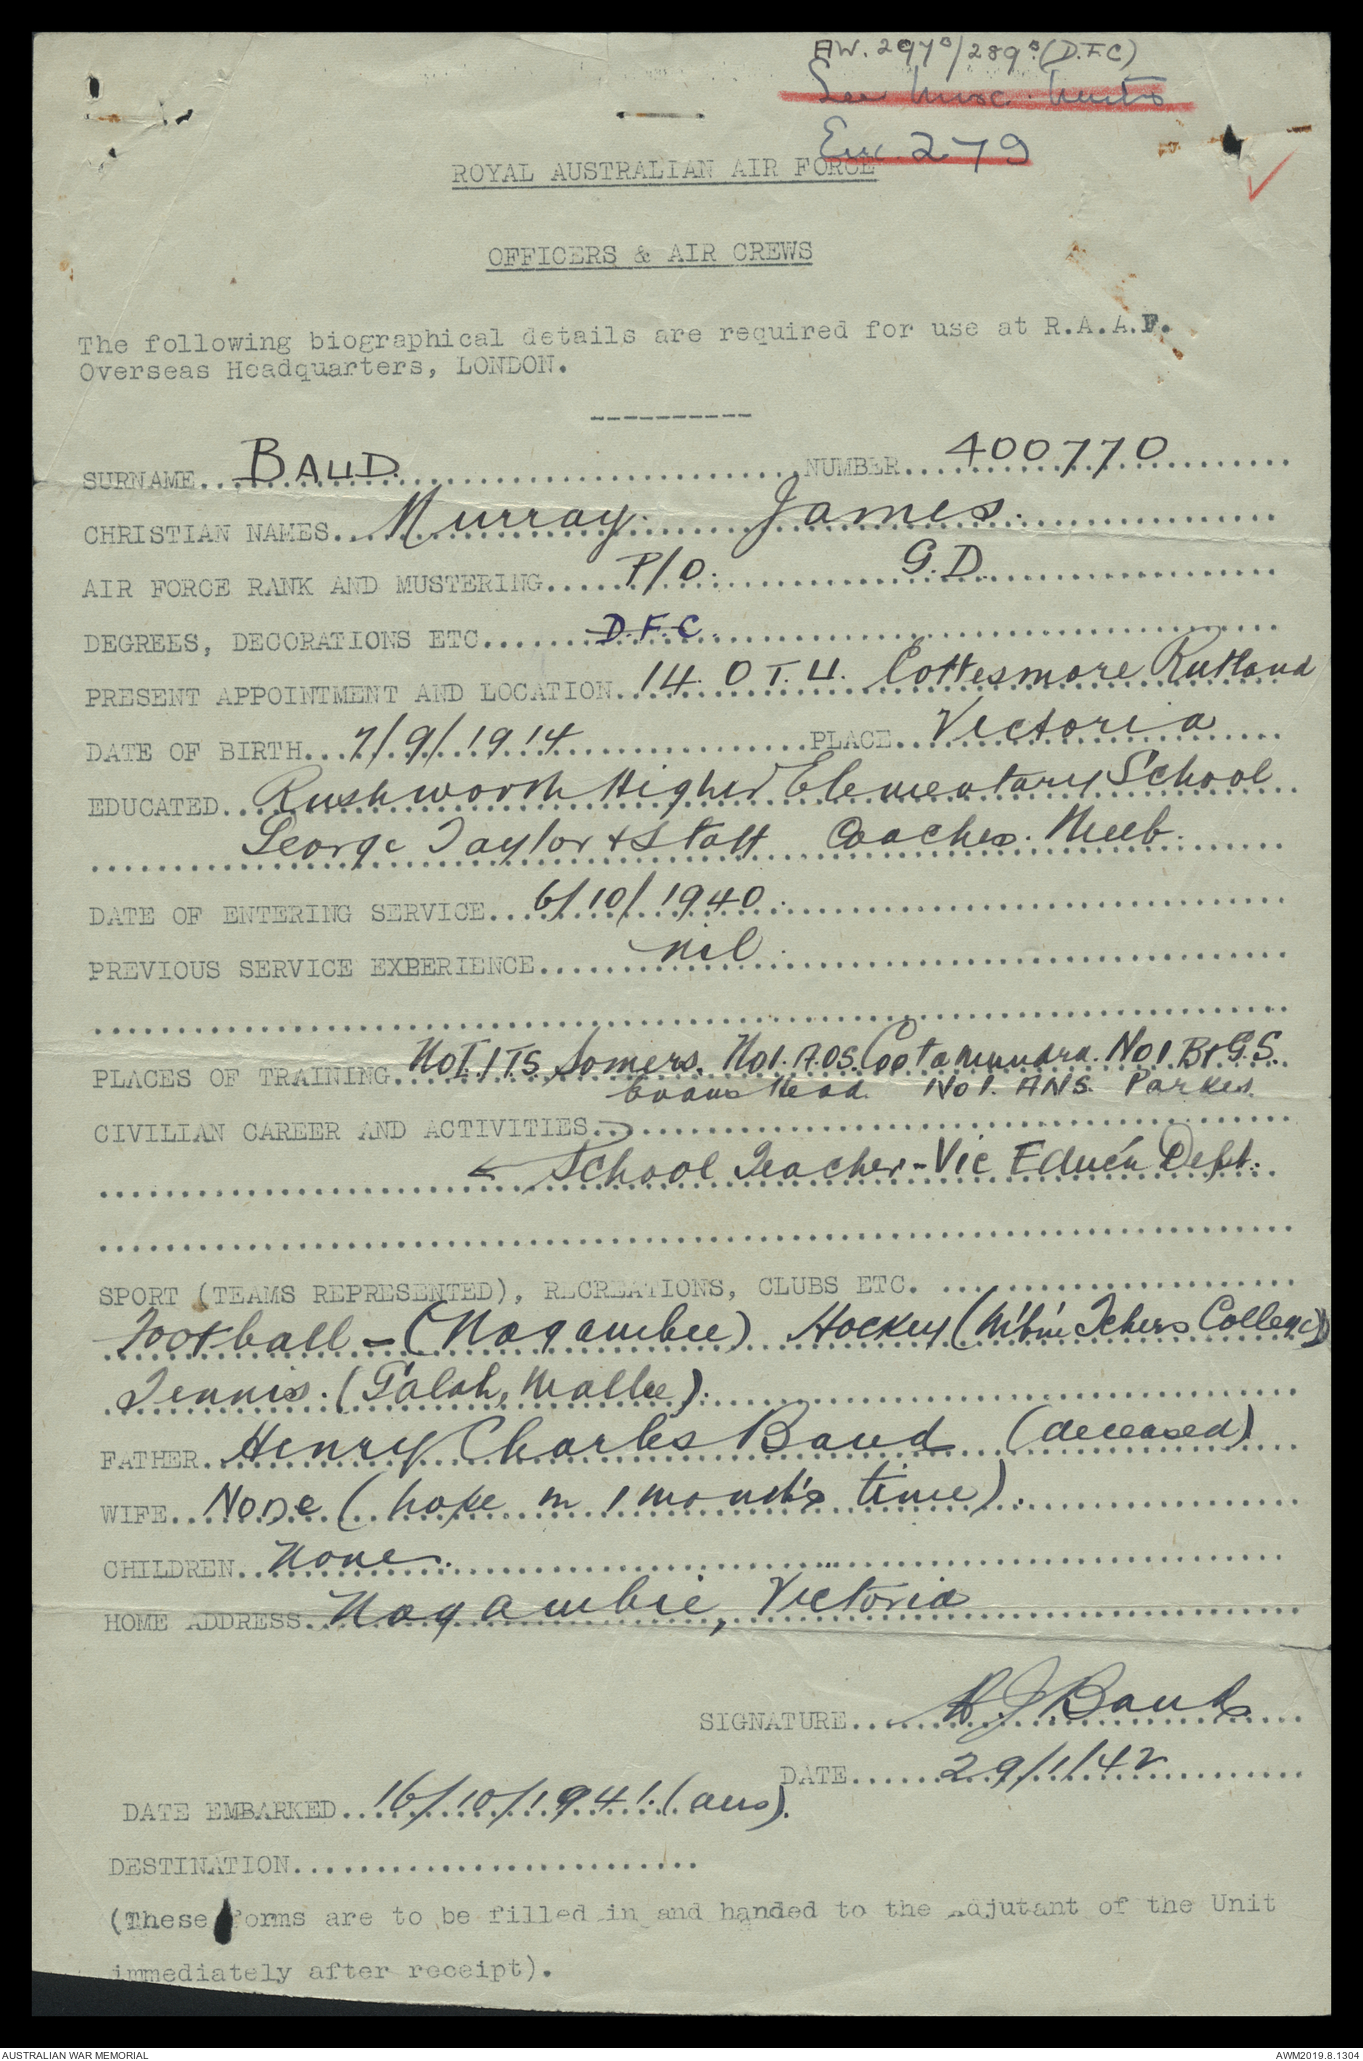 AW. 2970/2890 (D.F.C)
See Misc. Musto
Enc 279
ROYAL AUSTRALIAN AIR FORCE
OFFICERS & AIR CREWS
The following biographical details are required for use at R.A.A.F.
Overseas Headquarters, LONDON.
----------
SURNAME...BAUD...NUMBER...400770...
CHRISTIAN NAMES...Murray. James...
AIR FORCE RANK AND MUSTERING...P/O. G.D...
DEGREES, DECORATIONS ETC...D.F.C...
PRESENT APPOINTMENT AND LOCATION...14. O.T.U. Cottesmore Rutland
DATE OF BIRTH...7/9/1914...PLACE...Victoria...
EDUCATED...Rushworth Higher Elementary School...
George Taylor & Staff Coaches. Melb.
DATE OF ENTERING SERVICE...6/10/1940...
PREVIOUS SERVICE EXPERIENCE...nil...
PLACES OF TRAINING...No1. ITS Somers. No1. AOS. Cootamundra. No 1 B&GS.
Evans Head. No 1. ANS. Parkes.
CIVILIAN CAREER AND ACTIVITIES...
School Teacher - Vic Educ'n Dept.
SPORT (TEAMS REPRESENTED), RECREATIONS, CLUBS ETC. ...
Football - (Nagambie) Hockey (M'b'ne Tchers College)
Tennis. (Galah, Mallee).
FATHER...Henry Charles Baud (deceased)
WIFE...None (hope in 1 month's time).
CHILDREN...None...
HOME ADDRESS...Nagambie, Victoria
SIGNATURE...M J Baud
DATE...29/1/42
DATE EMBARKED...16/10/1941. (aus).
DESTINATION...
(These forms are to be filled in and handed to the Adjutant of the Unit
immediately after receipt).
AUSTRALIAN WAR MEMORIAL AWM2019.8.1304